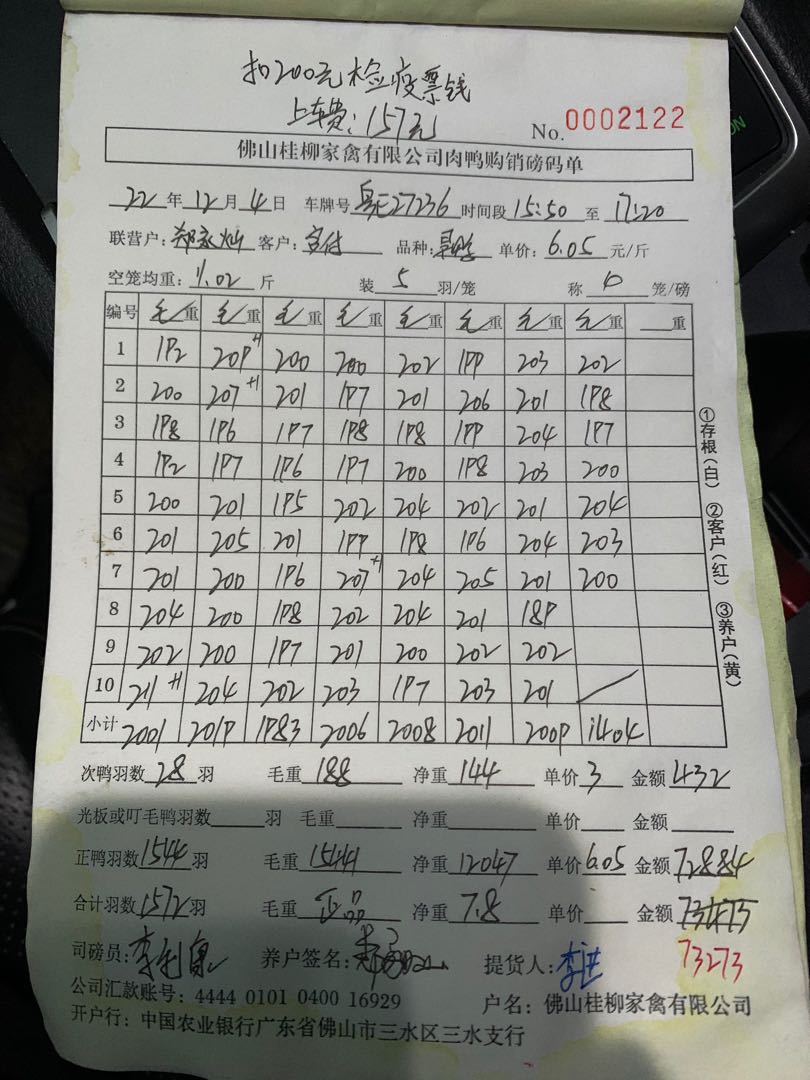 扣200元检疫票钱
上车费：157元
No. 0002122
佛山桂柳家禽有限公司肉鸭购销磅码单
22年12月4日 车牌号 27236 时间段 15:50 至 17:20
联营户：郑家灿 客户： 品种： 单价：6.05 元/斤
空笼均重：11.02 斤 装 5 羽/笼 称 4 笼/磅
编号 毛重 毛重 毛重 毛重 毛重 毛重 毛重 毛重 重
1 192 209+1 200 200 202 199 203 202
2 200 207+1 201 197 201 206 201 198
3 198 196 197 198 198 199 204 197
4 192 197 196 197 200 198 203 200
5 200 201 195 202 204 202 201 204
6 201 205 201 199 198 196 204 203
7 201 200 196 207+1 204 205 201 200
8 204 200 198 202 204 201 189
9 202 200 197 201 200 202 202
10 211+1 204 202 203 197 203 201
小计 2001 2019 1983 2006 2008 2011 2009 1404
次鸭羽数 28 羽 毛重 188 净重 144 单价 3 金额 432
光板或叮毛鸭羽数 羽 毛重 净重 单价 金额
正鸭羽数 1544 羽 毛重 15441 净重 12047 单价 6.05 金额 72884
合计羽数 1572 羽 毛重 正品 净重 7.8 单价 金额
司磅员： 养户签名： 提货人：李进 73273
公司汇款账号：4444 0101 0400 16929 户名：佛山桂柳家禽有限公司
开户行：中国农业银行广东省佛山市三水区三水支行
①存根(白) ②客户(红) ③养户(黄)